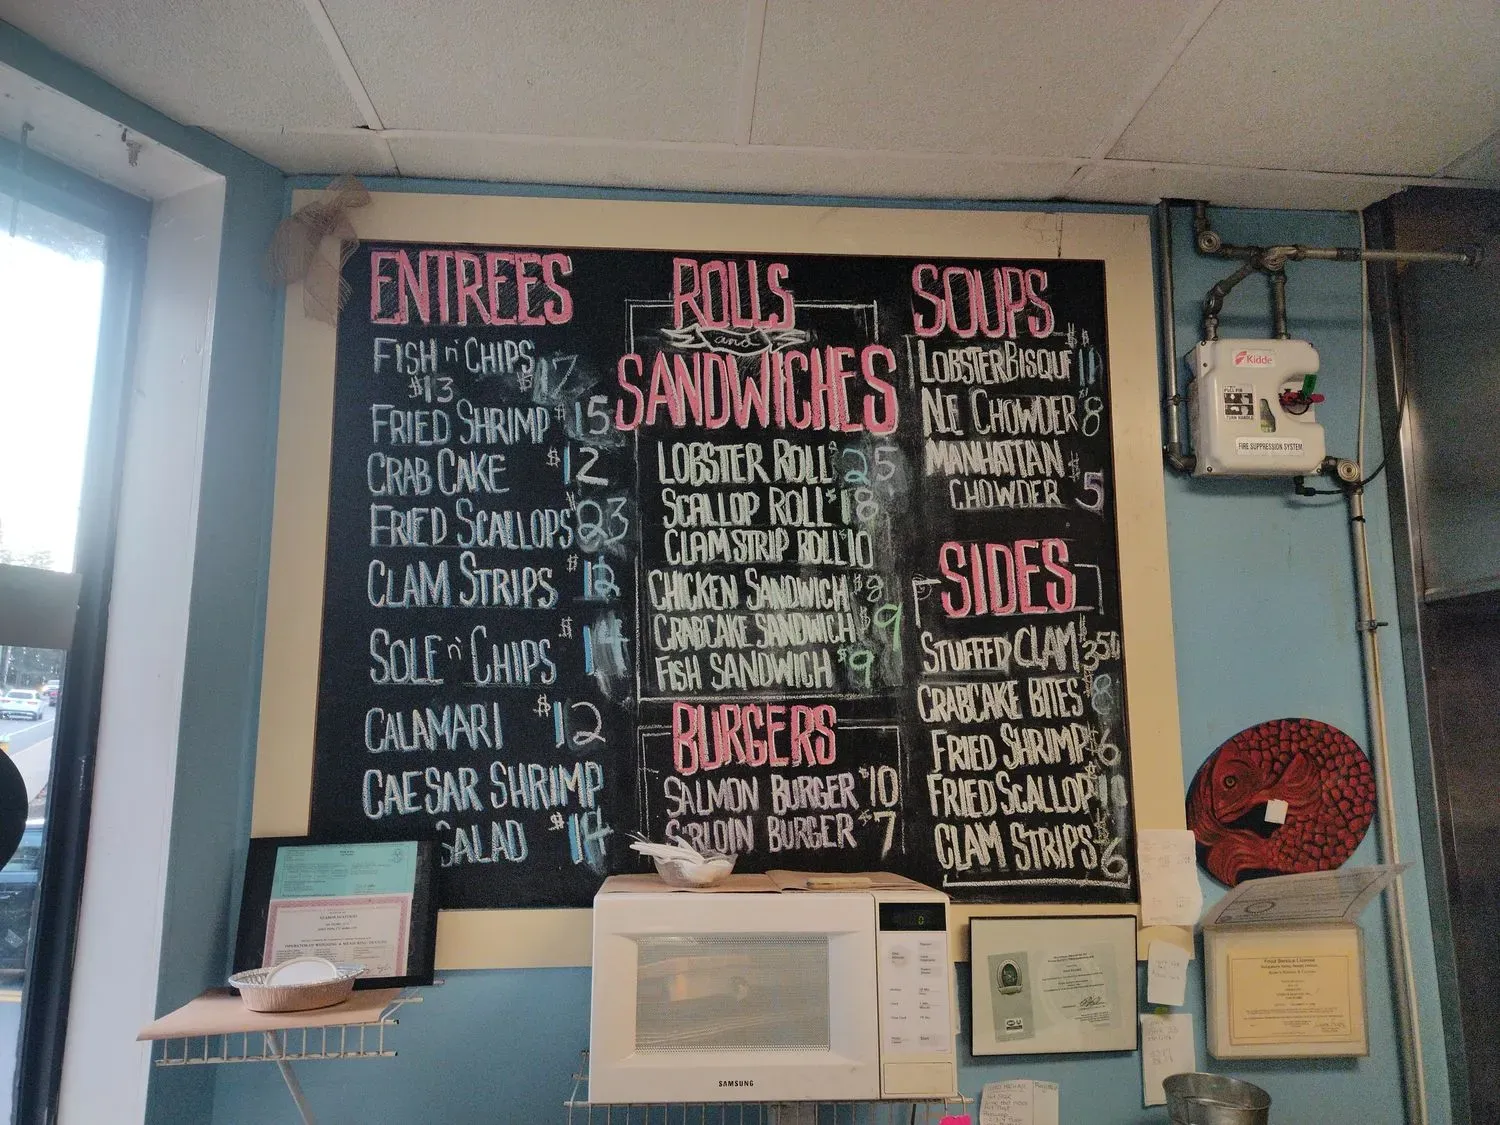 ENTREES
FISH n' CHIPS
$13 $17
FRIED SHRIMP $15
CRAB CAKE $12
FRIED SCALLOPS $23
CLAM STRIPS $12
SOLE n' CHIPS $14
CALAMARI $12
CAESAR SHRIMP
SALAD $14
ROLLS
and
SANDWICHES
LOBSTER ROLL $25
SCALLOP ROLL $18
CLAM STRIP ROLL $10
CHICKEN SANDWICH $8
CRABCAKE SANDWICH $9
FISH SANDWICH $9
BURGERS
SALMON BURGER $10
SIRLOIN BURGER $7
SOUPS
LOBSTER BISQUE $11
NE CHOWDER $8
MANHATTAN
CHOWDER $5
SIDES
STUFFED CLAM $3.50
CRABCAKE BITES $8
FRIED SHRIMP $6
FRIED SCALLOP $11
CLAM STRIPS $6
Kidde
FIRE SUPPRESSION SYSTEM
SAMSUNG
Food Service License